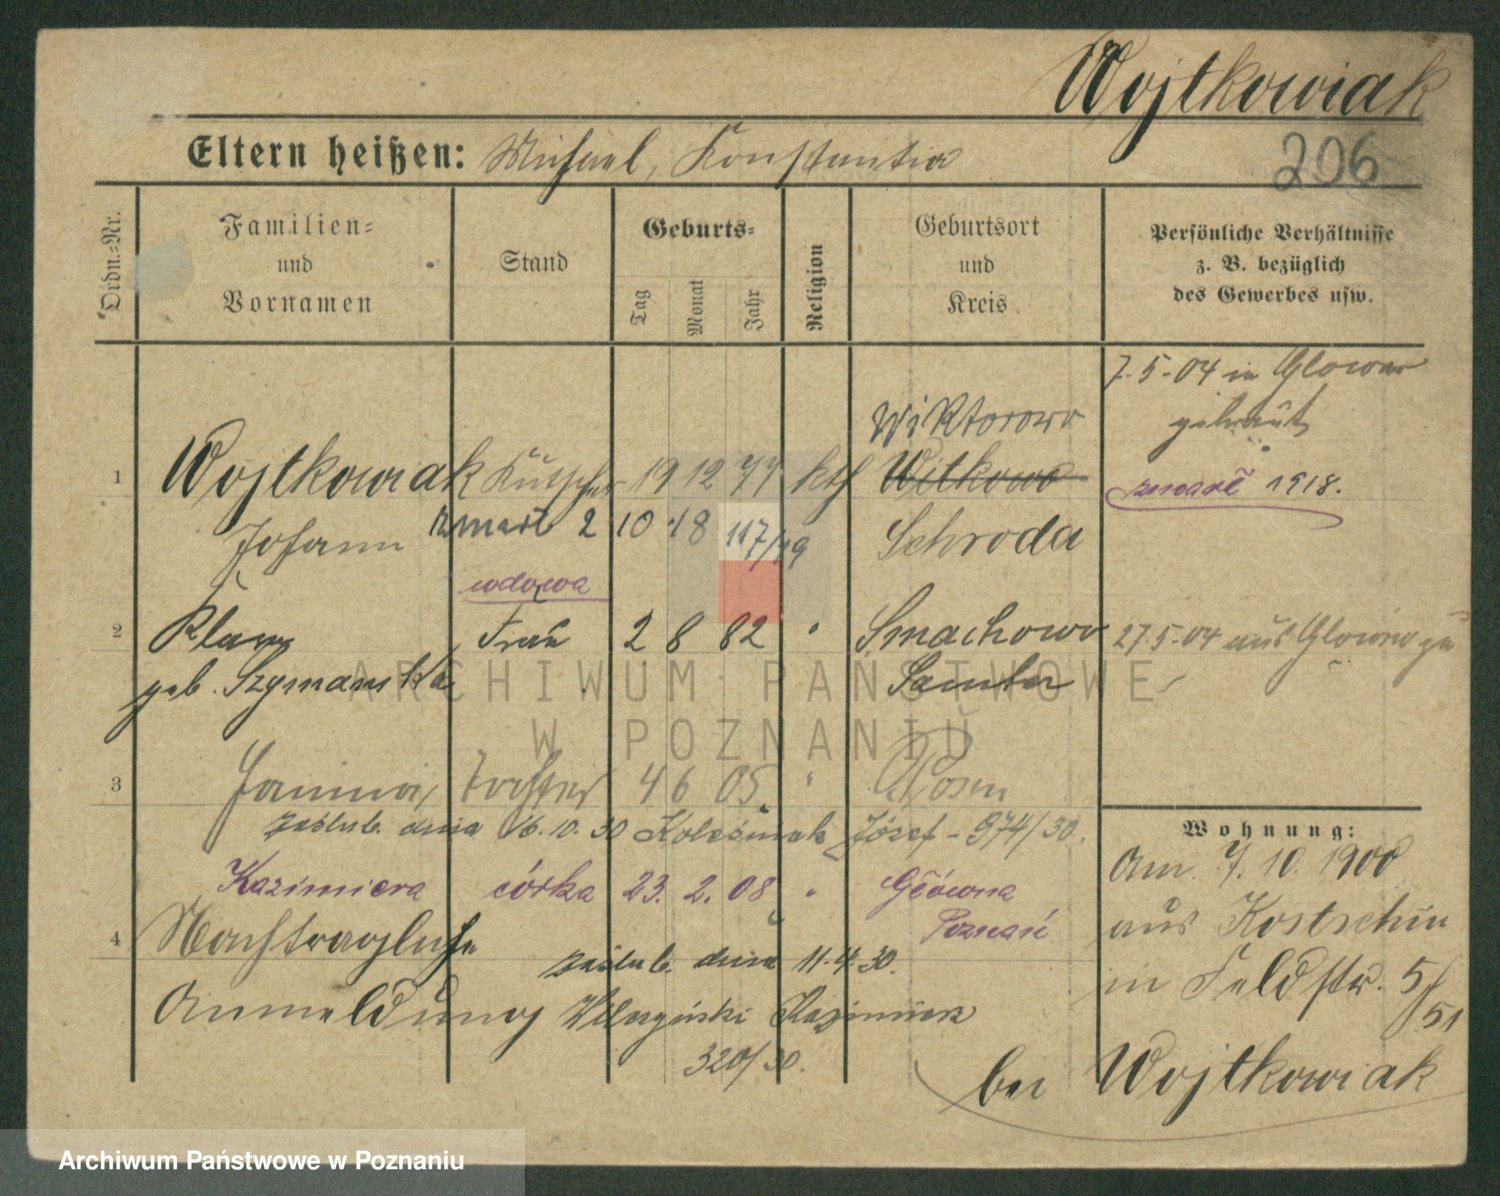 Wojtkowiak
206
Eltern heißen: Michael, Konstantia
Ordn.-Nr.
Familien-
und
Vornamen
Stand
Geburts-
Tag
Monat
Jahr
Religion
Geburtsort
und
Kreis
Persönliche Verhältnisse
z. B. bezüglich
des Gewerbes usw.
7.5.04 in Glowno
getraut
Wiktorowo
1 Wojtkowiak Kutscher 19 12 77 kth Witkowo
zmarł 1918.
Johann zmarł 2 10 18 117/19 Schroda
wdowa
2 Klara Frau 2 8 82 " Smachowo 27.5.04 aus Glowno zu
geb. Szymanska Samter
3 Janina, Tochter 4 6 05 " Posen
zaślub. dnia 16.10.30 Kolesniak Józef - 974/30.
Wohnung:
Am 7.10.1900
Kazimiera córka 23. 2. 08 " Główna
Poznań
aus Kostschin
4 Nachtragliche
zaślub. dnia 11.4.30.
in Feldstr. 5/51
Anmeldung Kazimierz
320/30.
bei Wojtkowiak
ARCHIWUM PAŃSTWOWE
W POZNANIU
Archiwum Państwowe w Poznaniu